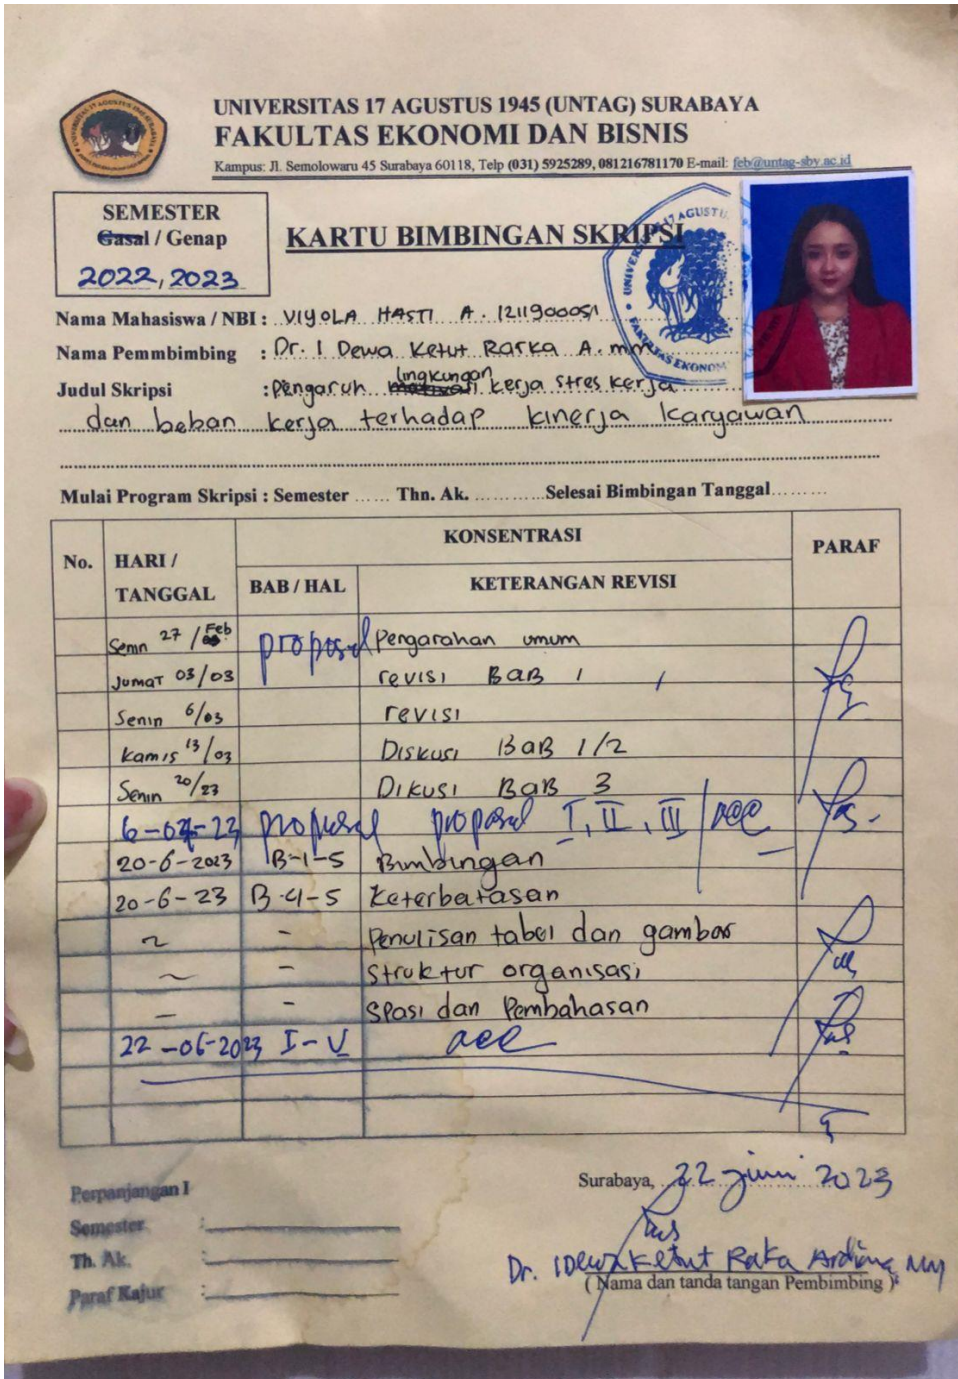 UNIVERSITAS 17 AGUSTUS 1945 (UNTAG) SURABAYA
FAKULTAS EKONOMI DAN BISNIS
Kampus: Jl. Semolowaru 45 Surabaya 60118, Telp (031) 5925289, 081216781170 E-mail: feb@untag-sby.ac.id
SEMESTER
Gasal / Genap
2022, 2023
KARTU BIMBINGAN SKRIPSI
Nama Mahasiswa / NBI : VIYOLA HASTI A. 1211900051
Nama Pemmbimbing : Dr. I Dewa Ketut Rarka A. mm
Judul Skripsi : Pengaruh lingkungan kerja stres kerja
dan beban kerja terhadap kinerja karyawan
Mulai Program Skripsi : Semester ...... Thn. Ak. ............ Selesai Bimbingan Tanggal.........
No. HARI / TANGGAL KONSENTRASI PARAF
BAB / HAL KETERANGAN REVISI
Senin 27 / Feb proposal Pengarahan umum
Jumat 03/03 revisi BAB 1
Senin 6/03 revisi
Kamis 13/03 Diskusi BAB 1/2
Senin 20/23 Dikusi BAB 3
proposal proposal I, II, III / acc
20-6-2023 B-1-5 Bimbingan
20-6-23 B-4-5 Keterbatasan
~ - Penulisan tabel dan gambar
~ - Struktur organisasi
- - Spasi dan Pembahasan
22-06-2023 I-V acc
Perpanjangan I
Semester :
Th. Ak. :
Paraf Kajur :
Surabaya, 22 juni 2023
Dr. I Dewa Ketut Raka Ardiana MM
( Nama dan tanda tangan Pembimbing )